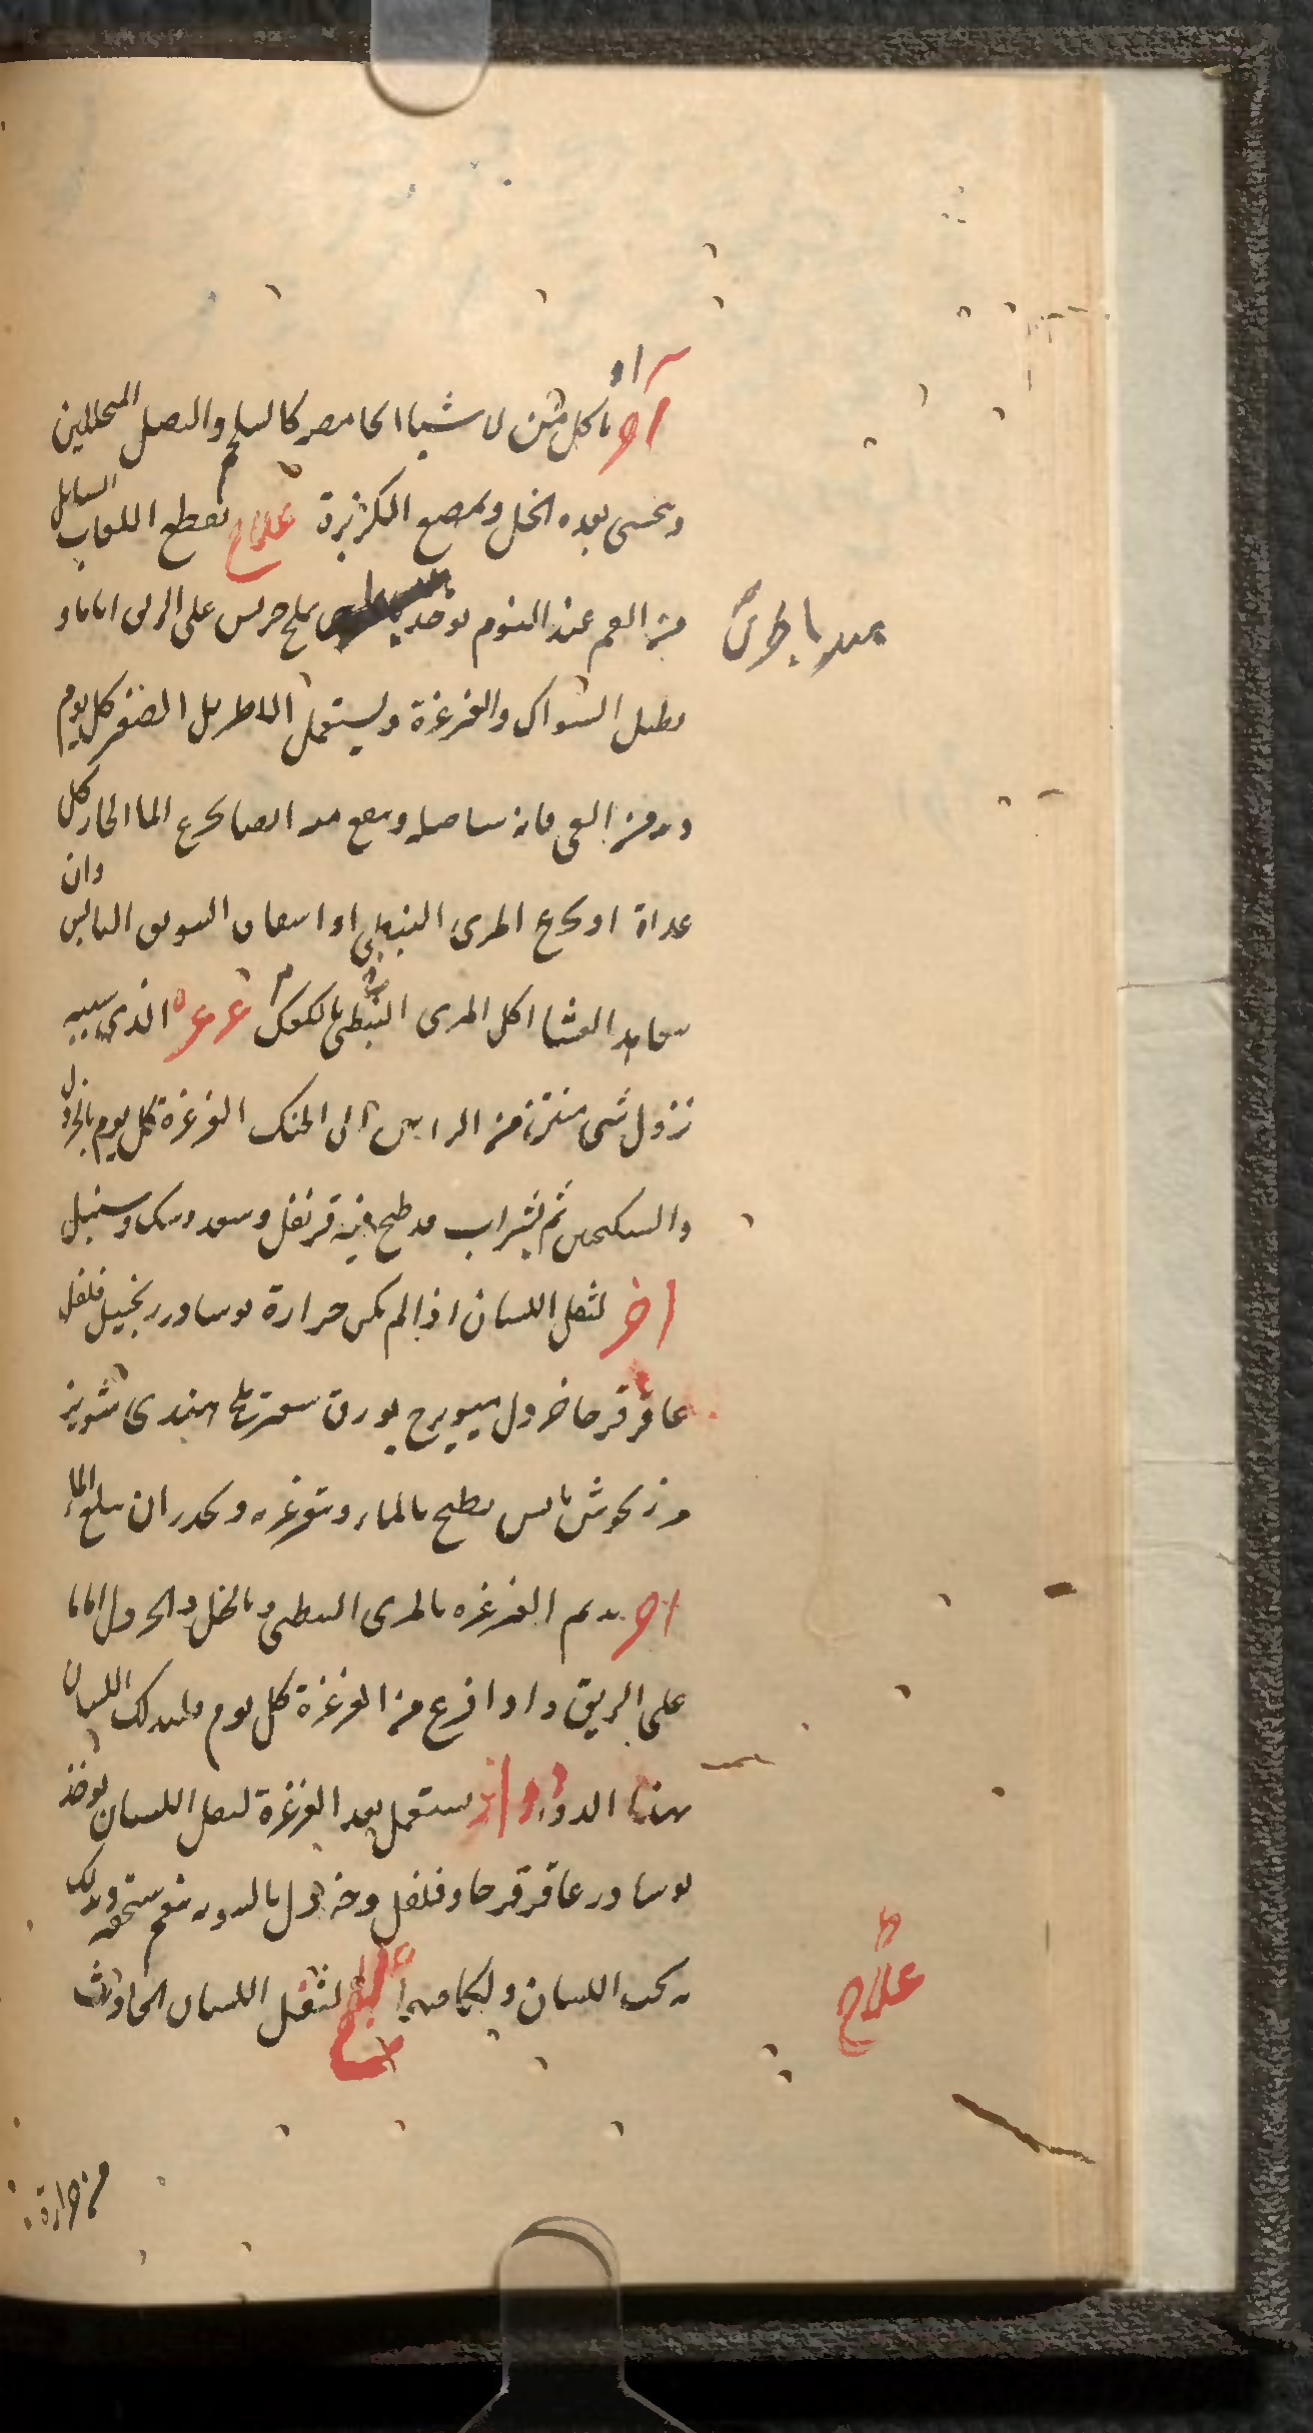 اخر ياكل من الاشيا الحامضه كالسلجم والبصل المخللين
ويحسى بعده الخل ويمضغ الكزبرة علاج يقطع اللعاب السايل
من الفم عند النوم يوخذ ملح جريش على الريق اياما و
يطيل السواك والغرغرة ويستعمل الاطريفل الصغير كل يوم
ويدمن القى فانه وينفع منه ايضا تجرع الما الحار كل
غداة او تجرع المرى النبطى او استفاف السويق اليابس وان
بعد العشا اكل المرى النبطى بالكعك غرغره الذى سببه
نزول شى منتن من الراس الى الحنك الغرغرة كل يوم بالخردل
والسكنجبين ثم بشراب قد طبخ فيه قرنفل وسعد وسك وسنبل
اخر لثقل اللسان اذا لم يكن حرارة نوشادر زنجبيل فلفل
عاقر قرحا خردل ميويزج بورق صعتر ملح هندى شونيز
مرزنجوش يابس يطبخ بالماء ويتغرغر به ويحذر ان يبلع الماء
اخر يديم الغرغره بالمرى النبطى وبالخل والخردل اياما
على الريق واذا فرغ من الغرغرة كل يوم فليدلك اللسان
بهذا الدوا اخر يستعمل بعد الغرغرة لثقل اللسان يوخذ
نوشادر عاقر قرحا وفلفل وخردل بالسويه ينعم سحقه ويدلك
به تحت اللسان علاج لثقل اللسان الحادث
علاج
من حرارة